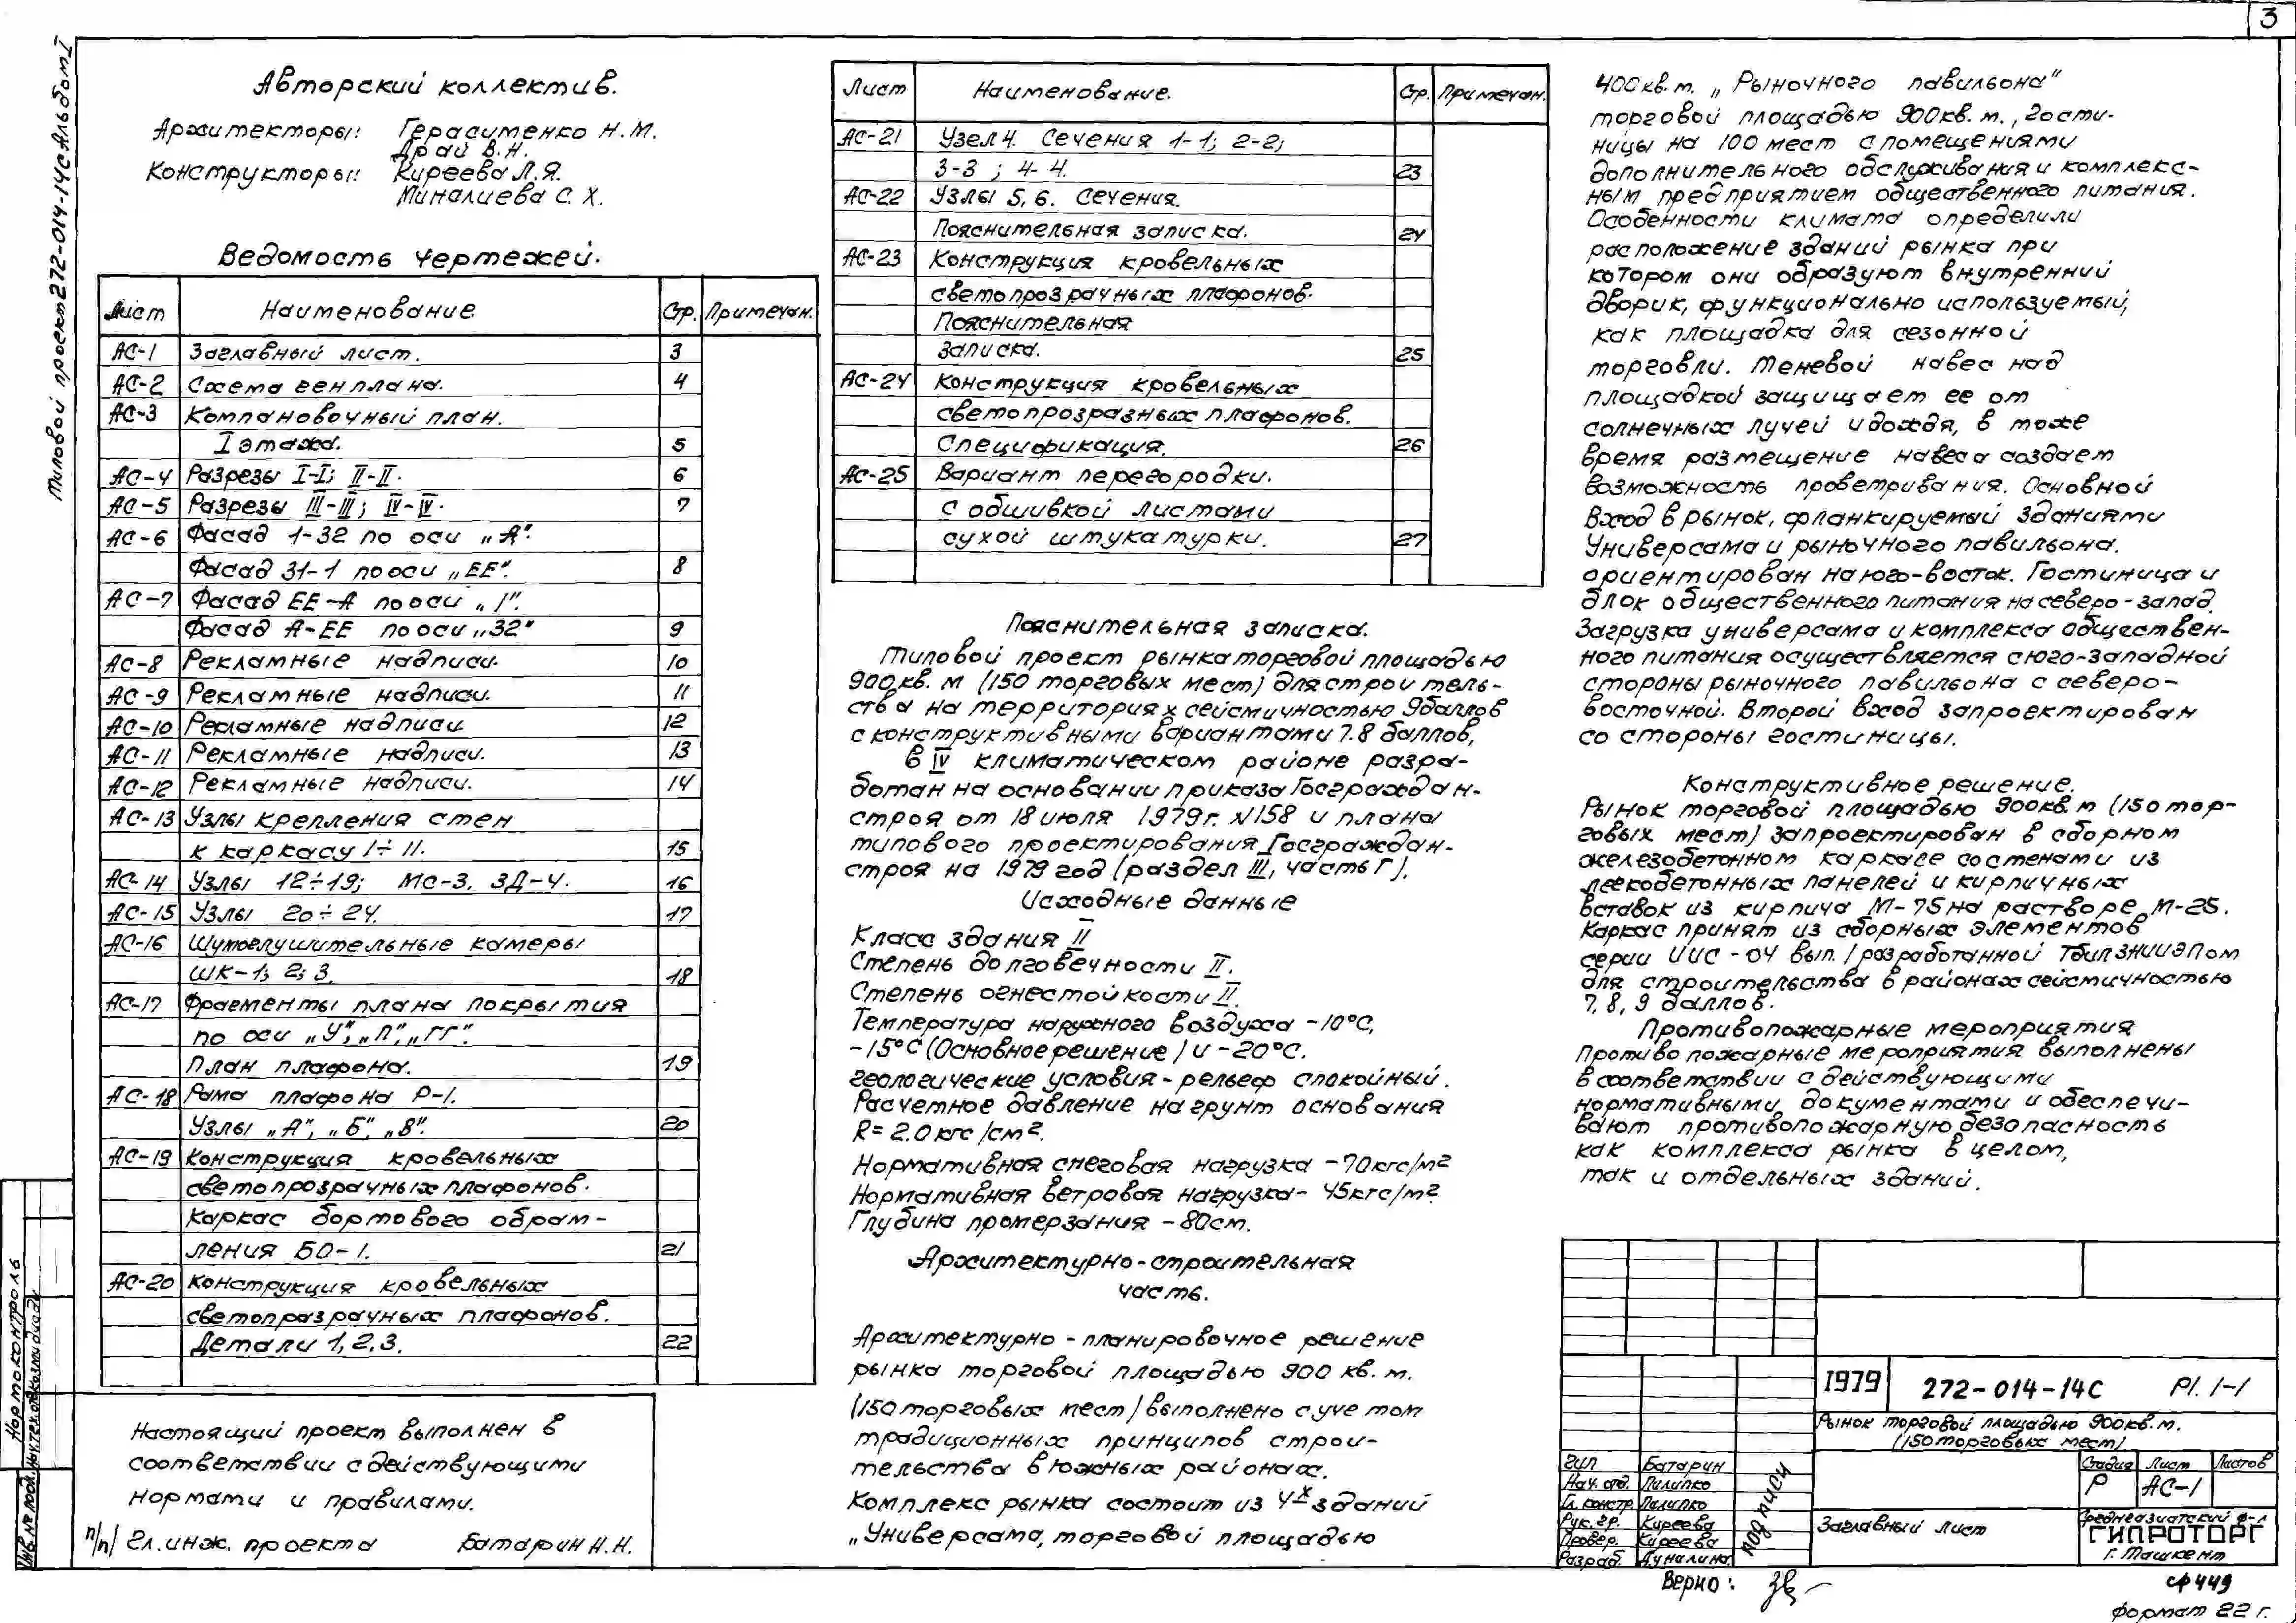 3
Типовой проект 272-014-14С Альбом I
Авторский коллектив.
Архитекторы: Герасименко Н.М.
Драй В.Н.
Конструкторы: Киреева Л.Я.
Миналиева С.Х.
Ведомость чертежей.
Лист Наименование Стр. Примечан.
АС-1 Заглавный лист. 3
АС-2 Схема генплана. 4
АС-3 Компановочный план.
I этажа. 5
АС-4 Разрезы I-I; II-II. 6
АС-5 Разрезы III-III; IV-IV. 7
АС-6 Фасад 1-32 по оси „А".
Фасад 31-1 по оси „ЕЕ". 8
АС-7 Фасад ЕЕ-А по оси „1".
Фасад А-ЕЕ по оси „32" 9
АС-8 Рекламные надписи. 10
АС-9 Рекламные надписи. 11
АС-10 Рекламные надписи 12
АС-11 Рекламные надписи. 13
АС-12 Рекламные надписи. 14
АС-13 Узлы крепления стен
к каркасу 1÷11. 15
АС-14 Узлы 12÷19; МС-3. ЗД-4. 16
АС-15 Узлы 20÷24. 17
АС-16 Шумоглушительные камеры
ШК-1; 2; 3. 18
АС-17 Фрагменты плана покрытия
по оси „У", „Л", „ГГ".
План плафона. 19
АС-18 Рама плафона Р-1.
Узлы „А", „Б", „В". 20
АС-19 Конструкция кровельных
светопрозрачных плафонов.
Каркас бортового обрам-
ления БО-1. 21
АС-20 Конструкция кровельных
светопразрачных плафонов.
Детали 1, 2, 3. 22
Настоящий проект выполнен в
соответствии с действующими
нормати и правилами.
п/п/ Гл. инж. проекта Батарин Н.Н.
Нормоконтроль
Инв. № подл.
Лист Наименование. Стр. Примечан.
АС-21 Узел 4. Сечения 1-1; 2-2;
3-3; 4-4. 23
АС-22 Узлы 5, 6. Сечения.
Пояснительная записка. 24
АС-23 Конструкция кровельных
светопрозрачных плафонов.
Пояснительная
записка. 25
АС-24 Конструкция кровельных
светопрозразных плафонов.
Спецификация. 26
АС-25 Вариант перегородки.
с обшивкой листами
сухой штукатурки. 27
Пояснительная записка.
Типовой проект рынка торговой площадью
900кв. м (150 торговых мест) для строитель-
ства на территориях сейсмичностью 9баллов
с конструктивными вариантами 7.8 баллов,
в IV климатическом районе разра-
ботан на основании приказа Госграждан-
строя от 18 июля 1979г. №158 и плана
типового проектирования Госграждан-
строя на 1979 год (раздел III, часть Г).
Исходные данные
Класс здания II
Степень долговечности II.
Степень огнестойкости II.
Температура наружного воздуха -10°С,
-15°С (Основное решение) и -20°С.
геологические условия - рельеф спокойный.
Расчетное давление на грунт основания
R= 2.0кгс/см².
Нормативная снеговая нагрузка -70кгс/м²
Нормативная ветровая нагрузка- 45кгс/м²
Глубина промерзания - 80см.
Архитектурно-строительная
часть.
Архитектурно-планировочное решение
рынка торговой площадью 900 кв. м.
(150 торговых мест) выполнено с учетом
традиционных принципов строи-
тельства в южных районах.
Комплекс рынка состоит из 4х зданий
„Универсама, торговой площадью
400кв.м. „Рыночного павильона"
торговой площадью 900кв. м., гости-
ницы на 100 мест с помещениями
дополнительного обслуживания и комплекс-
ным предприятием общественного питания.
Особенности климата определили
расположение зданий рынка при
котором они образуют внутренний
дворик, функционально используемый,
как площадка для сезонной
торговли. Теневой навес над
площадкой защищает ее от
солнечных лучей и дождя, в тоже
время размещение навеса создает
возможность проветривания. Основной
вход в рынок, фланкируемый зданиями
Универсама и рыночного павильона.
ориентирован на юго-восток. Гостиница и
блок общественного питания на северо-запад.
Загрузка универсама и комплекса обществен-
ного питания осуществляется с юго-западной
стороны рыночного павильона с северо-
восточной. Второй вход запроектирован
со стороны гостиницы.
Конструктивное решение.
Рынок торговой площадью 900кв. м (150 тор-
говых мест) запроектирован в сборном
железобетонном каркасе со стенами из
легкобетонных панелей и кирпичных
вставок из кирпича М-75 на растворе М-25.
Каркас принят из сборных элементов
серии ИИС-04 вып. 1 разработанной ТбилЗНИИЭПом
для строительства в районах сейсмичностью
7, 8, 9 баллов.
Противопожарные мероприятия
Противопожарные мероприятия выполнены
в соответствии с действующими
нормативными документами и обеспечи-
вают противопожарную безопасность
как комплекса рынка в целом,
так и отдельных зданий.
1979 272-014-14С Р1. 1-1
Рынок торговой площадью 900кв.м.
(150 торговых мест)
ГИП Батарин
Нач. отд. Пилипко
Гл. констр. Пилипко
Рук. гр. Киреева
Провер. Киреева
Разраб. Дуналина
подписи
Стадия Лист Листов
Р АС-1
Заглавный лист
Среднеазиатский ф-л
ГИПРОТОРГ
г. Ташкент
Верно:
сф 449
формат 22 г.